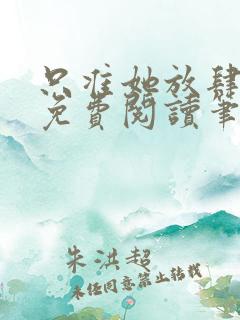 只准她放肆
免費閱讀筆
朱洪超
未经同意禁止转载